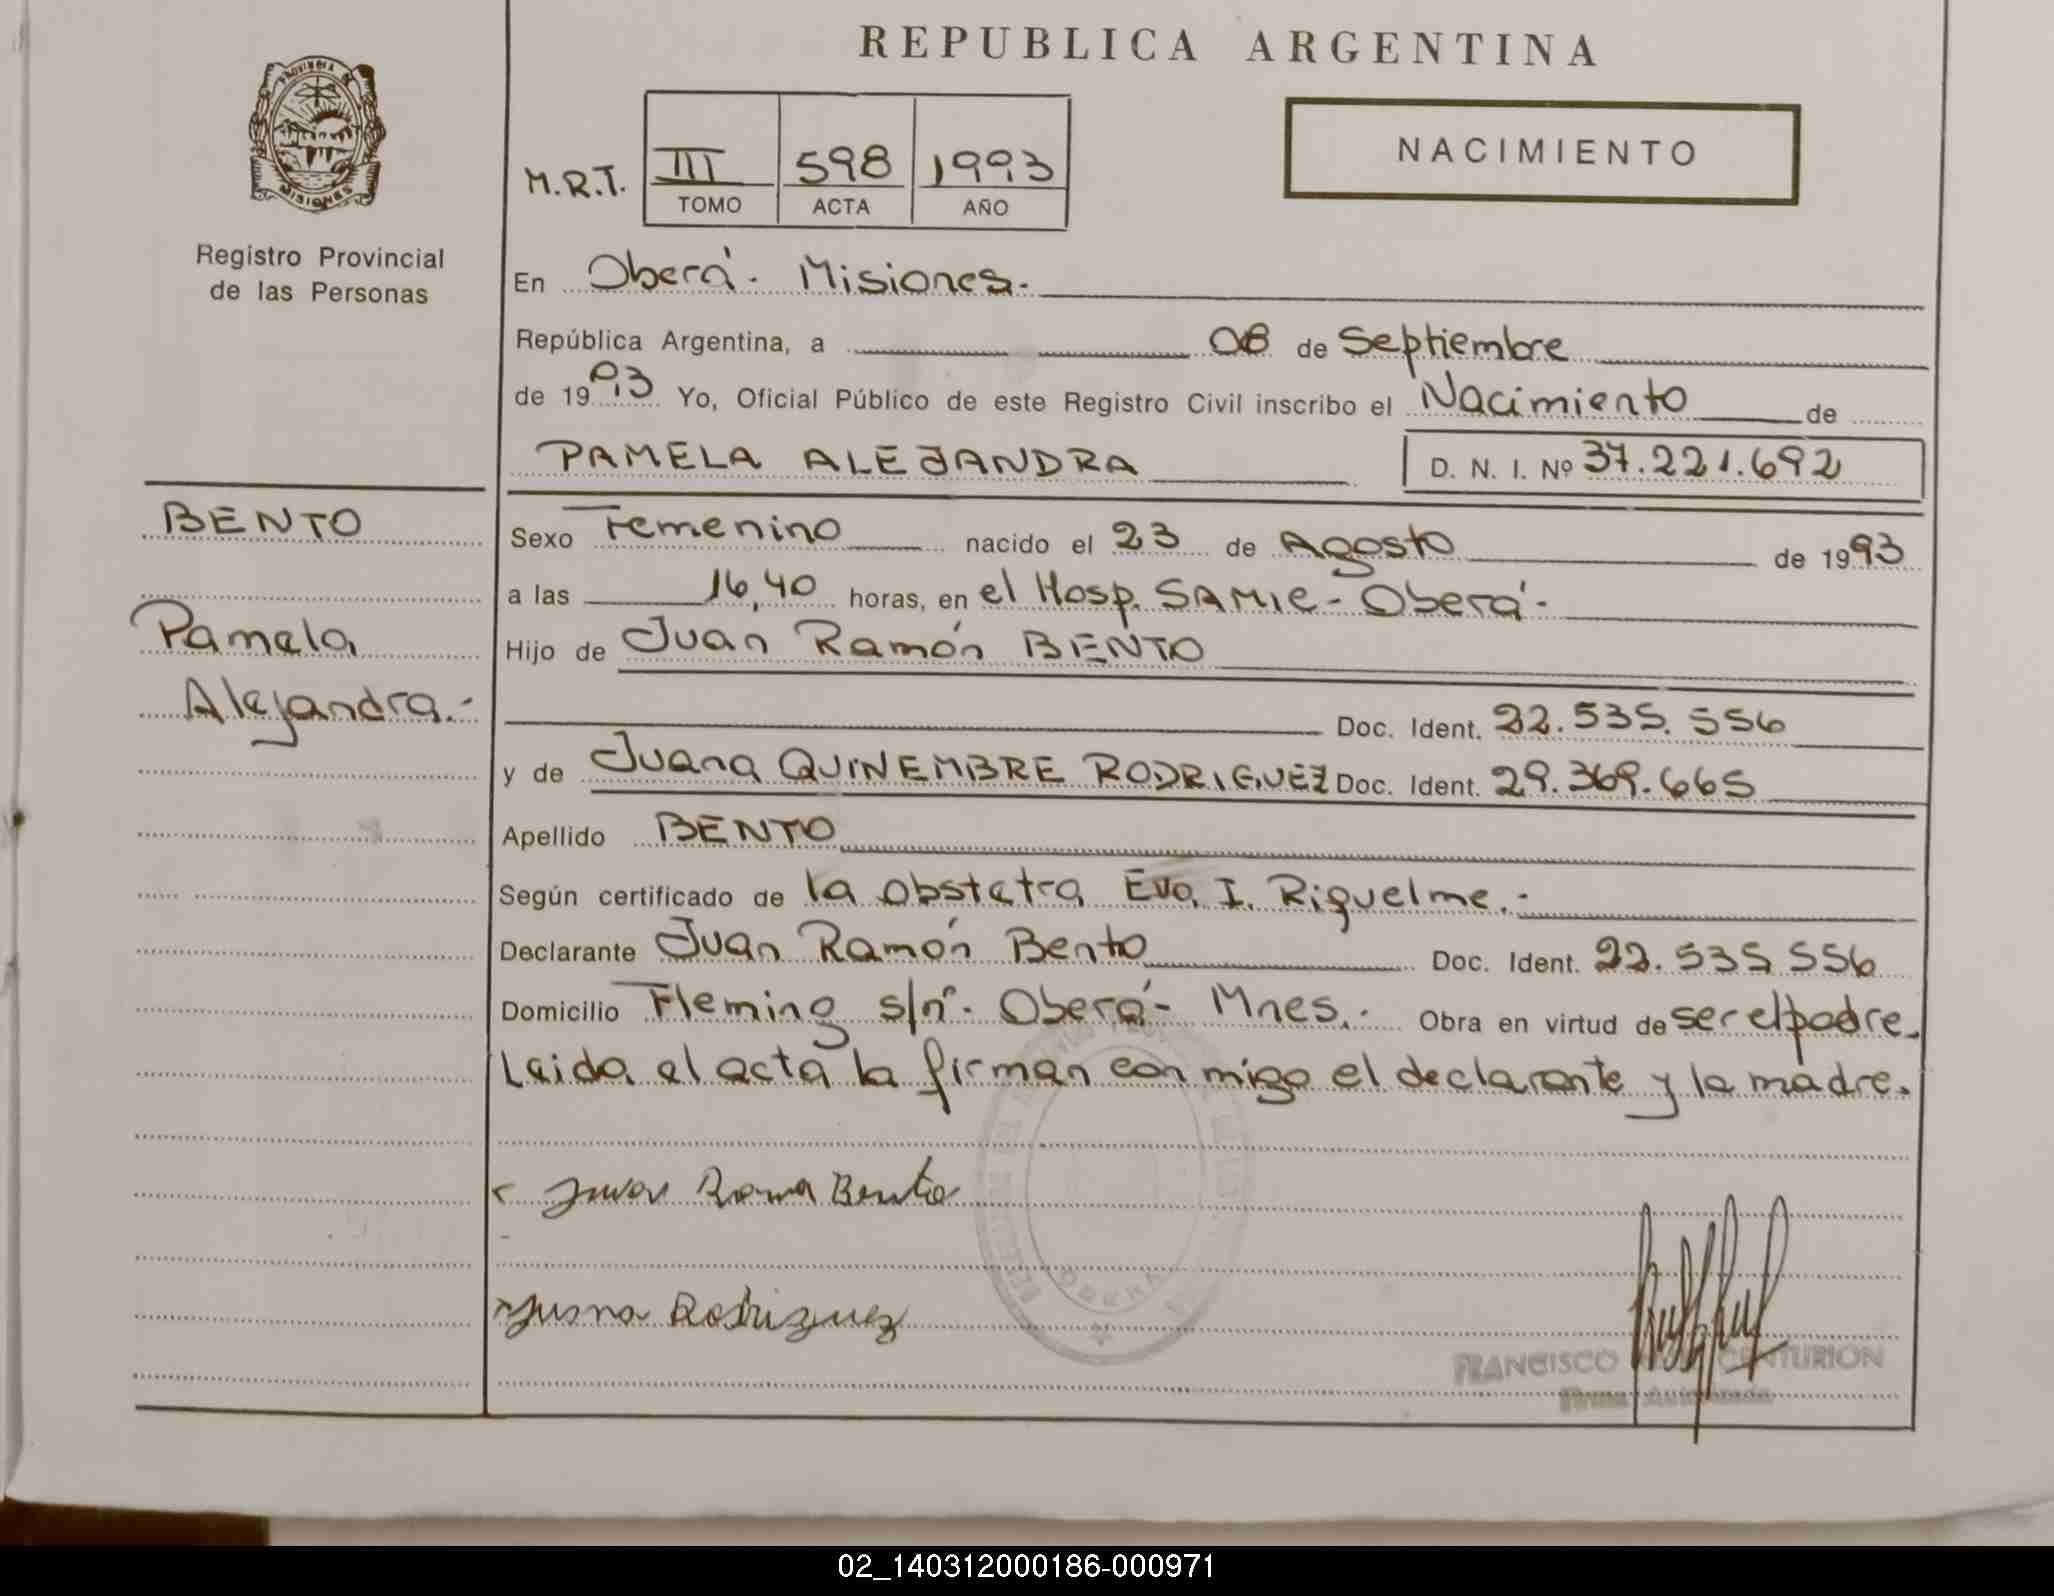 REPUBLICA ARGENTINA
PROVINCIA DE
MISIONES
Registro Provincial
de las Personas
NACIMIENTO
M.R.T.
III 598 1993
TOMO ACTA AÑO
En Oberá. Misiones.
República Argentina, a 08 de Septiembre
de 1993 Yo, Oficial Público de este Registro Civil inscribo el Nacimiento de
PAMELA ALEJANDRA D. N. I. Nº 37.221.692
BENTO
Pamela
Alejandra.-
Sexo Femenino nacido el 23 de Agosto de 1993
a las 16,40 horas, en el Hosp. SAMIC - Oberá -
Hijo de Juan Ramón BENTO
Doc. Ident. 22.535.556
y de Juana QUINEMBRE RODRIGUEZ Doc. Ident. 29.369.665
Apellido BENTO
Según certificado de la obstetra Eva I. Riquelme.-
Declarante Juan Ramón Bento Doc. Ident. 22.535 556
Domicilio Fleming s/nº. Oberá - Mnes.- Obra en virtud de ser el padre.
Leida el acta la firman con migo el declarante y la madre.
Juan Roma Bento
Juana Rodriguez
OBERA
FRANCISCO CENTURION
Firma Autorizada
02_140312000186-000971